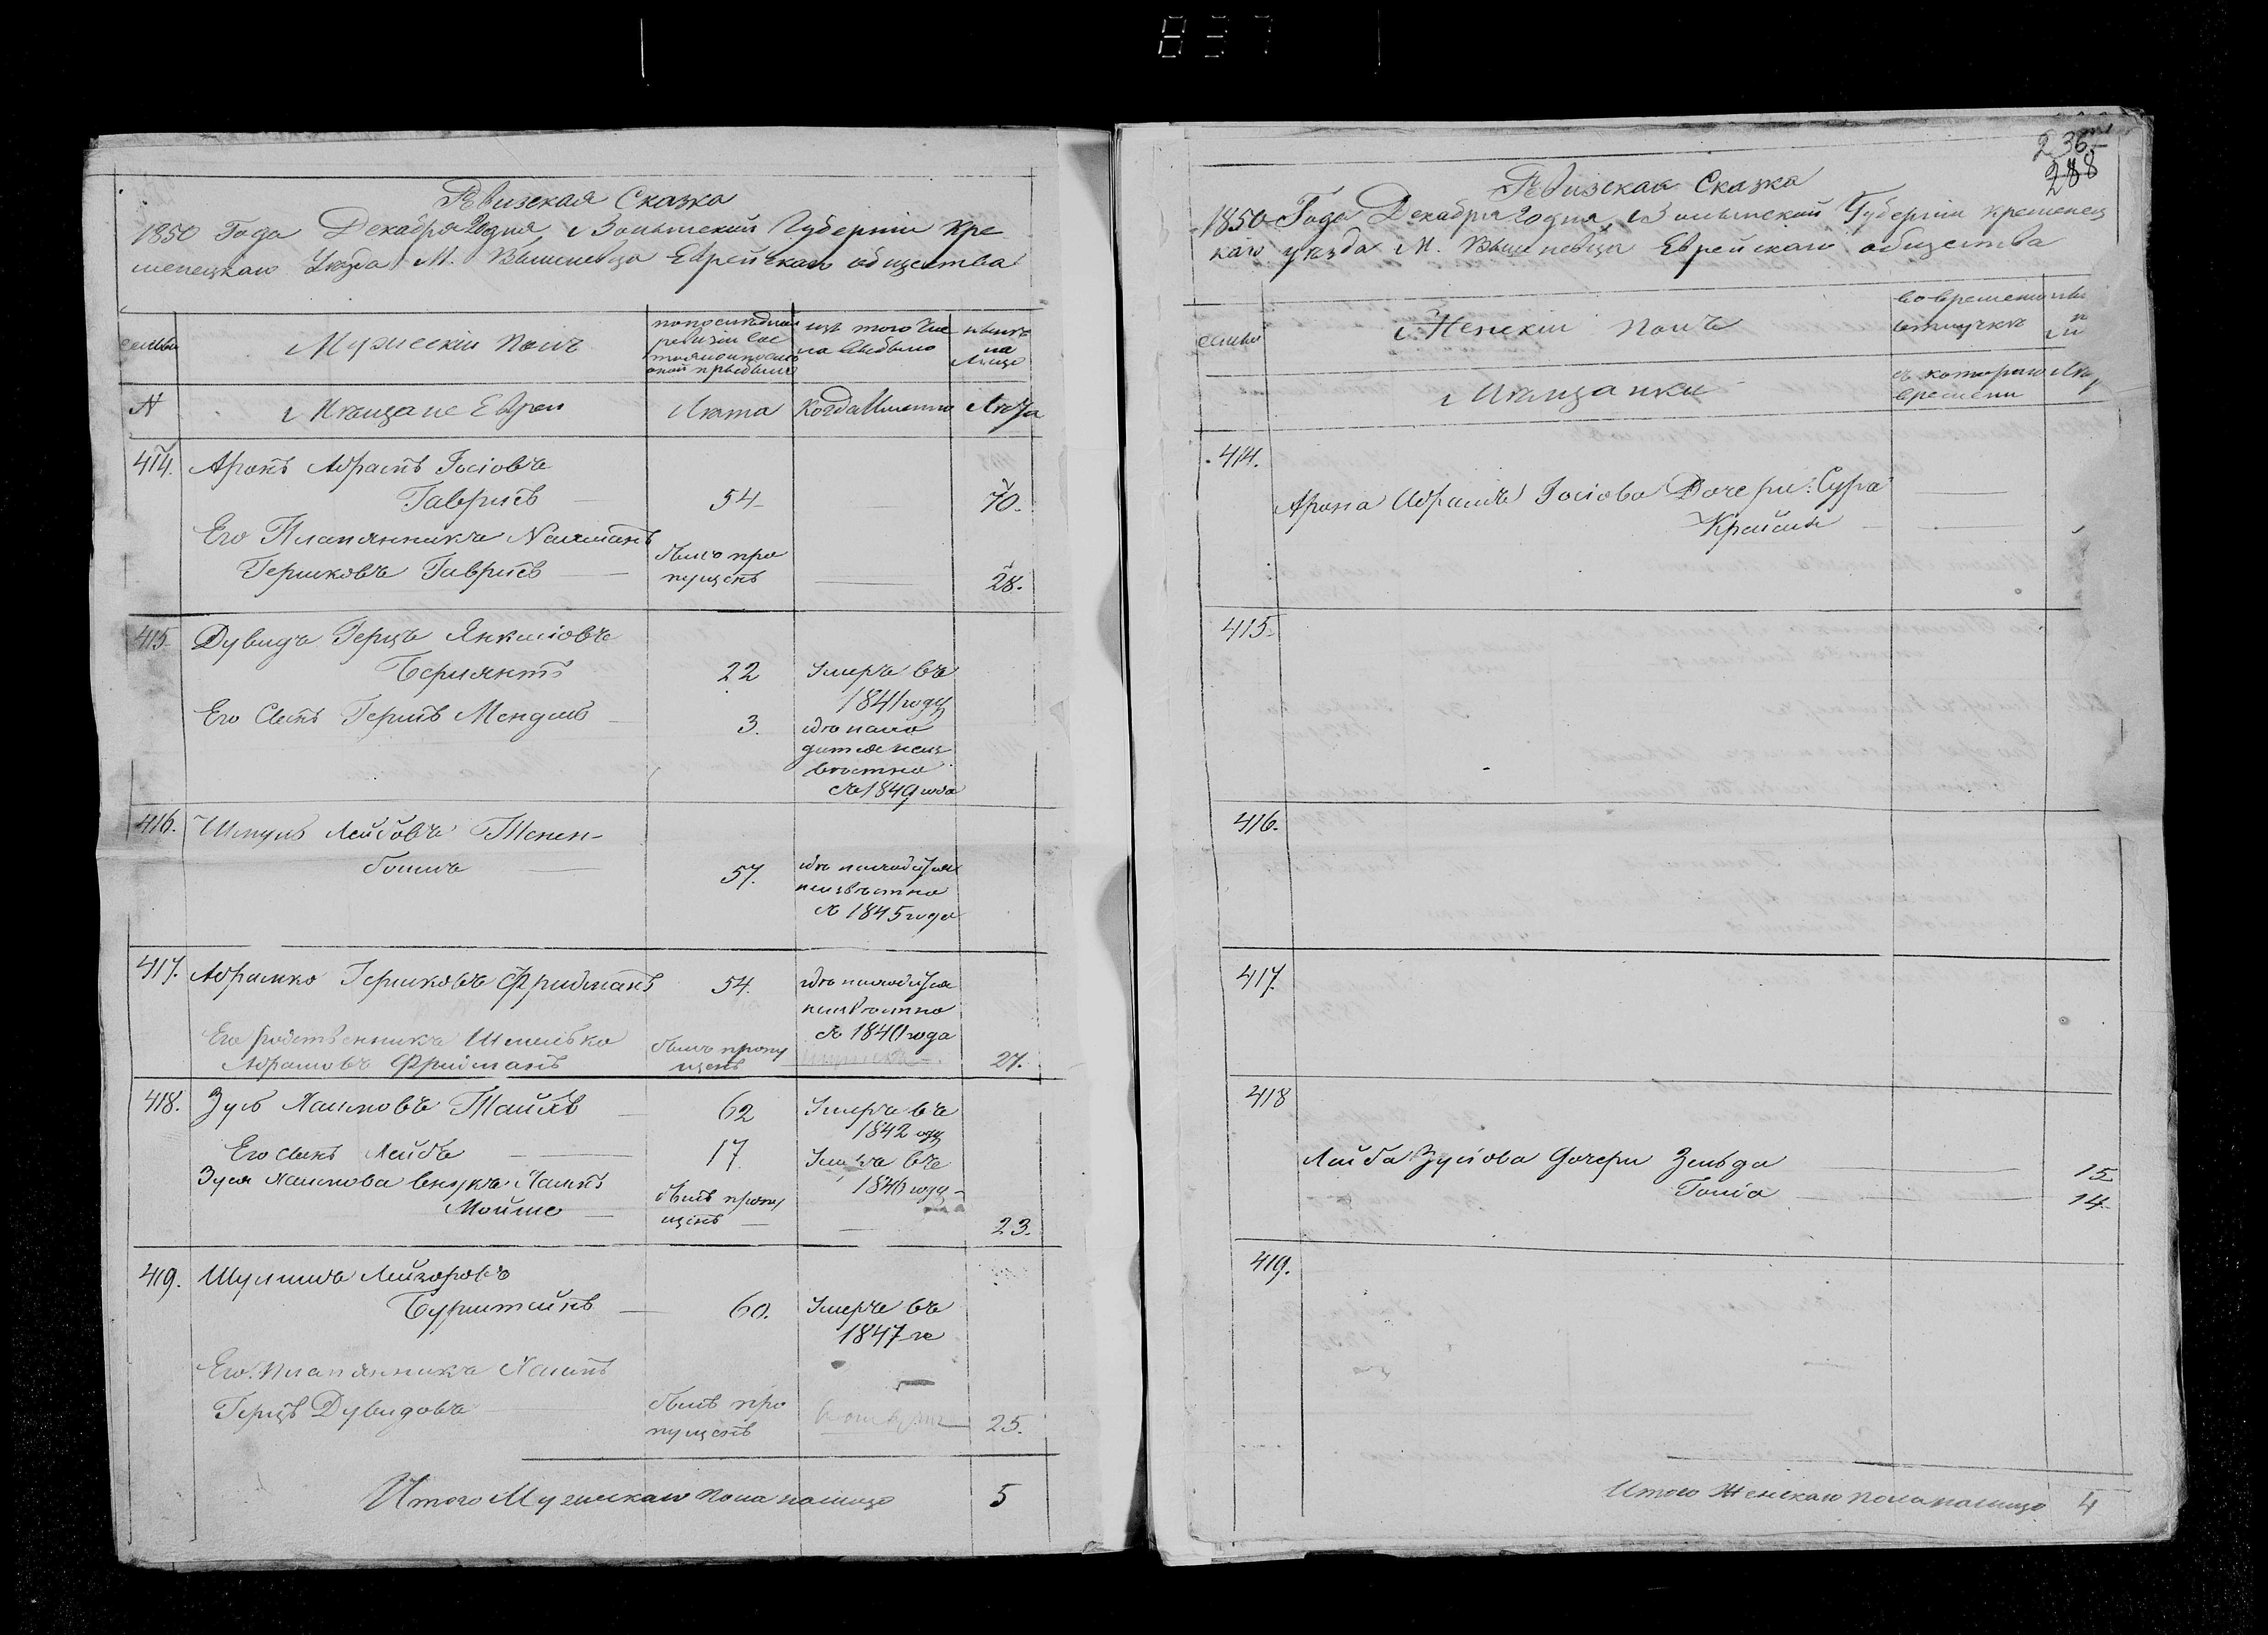 837
Ревизская Сказка
1850 Года Декабря 20 дня, Волынской Губернiи Кре
менецкаго Уезда М. Вишневца Еврейскаго общества
семьи
Мужескiй полъ
по последней
ревизiи сос
изъ того чис
ла выбыло
ныне
на
лицо
N
Мещане Евреи
Лета
Когда Именно
Лета
414.
Аронъ Абрамъ Iосiовъ
Гавришъ
54
70.
Его Племянникъ
Гершковъ Гавришъ
былъ про
пущенъ
28.
415.
Дувидъ Герцъ Янкелiовъ
22
Умеръ въ
1841 году
Его Сынъ Гершъ Мендель
3.
где нахо
дится неиз
вестно
съ 1849 года
416.
Шмуль Лейбовъ Тенен-
боимъ
57.
где находится
неизвестно
съ 1845 года
417.
Абрамко Гершковъ Фридманъ
54.
где находится
неизвестно
съ 1840 года
Его родственникъ Шмилько
Абрамовъ Фридманъ
былъ пропу
щенъ
27.
418.
Зусь Хаимовъ
62
Умеръ въ
1842 году
Его Сынъ Лейба
17
Умеръ въ
1846 году
Зуся Хаимова внукъ Хаимъ
Мойше
былъ пропу
щенъ
23.
419.
Шулимъ Лейзоровъ
Бурштейнъ
60.
Умеръ въ
1847 го
Его племянникъ Хаимъ
Герцъ Дувидовъ
былъ про
пущенъ
25.
Итого Мужескаго пола налицо
5
236
288
Ревизская Сказка
1850 Года Декабря 20 дня, Волынской Губернiи Кременец
каго уезда М. Вишневца Еврейскаго общества
семьи
Женскiй полъ
во временной
отлучке
Мещанки
съ котораго
времени
414.
Арона Абрамъ Iосiова Дочери: Сура
Крейса
415.
416.
417.
418
Лейба Зусiова дочери Зельда
15
14
419.
Итого Женскаго пола налицо
4